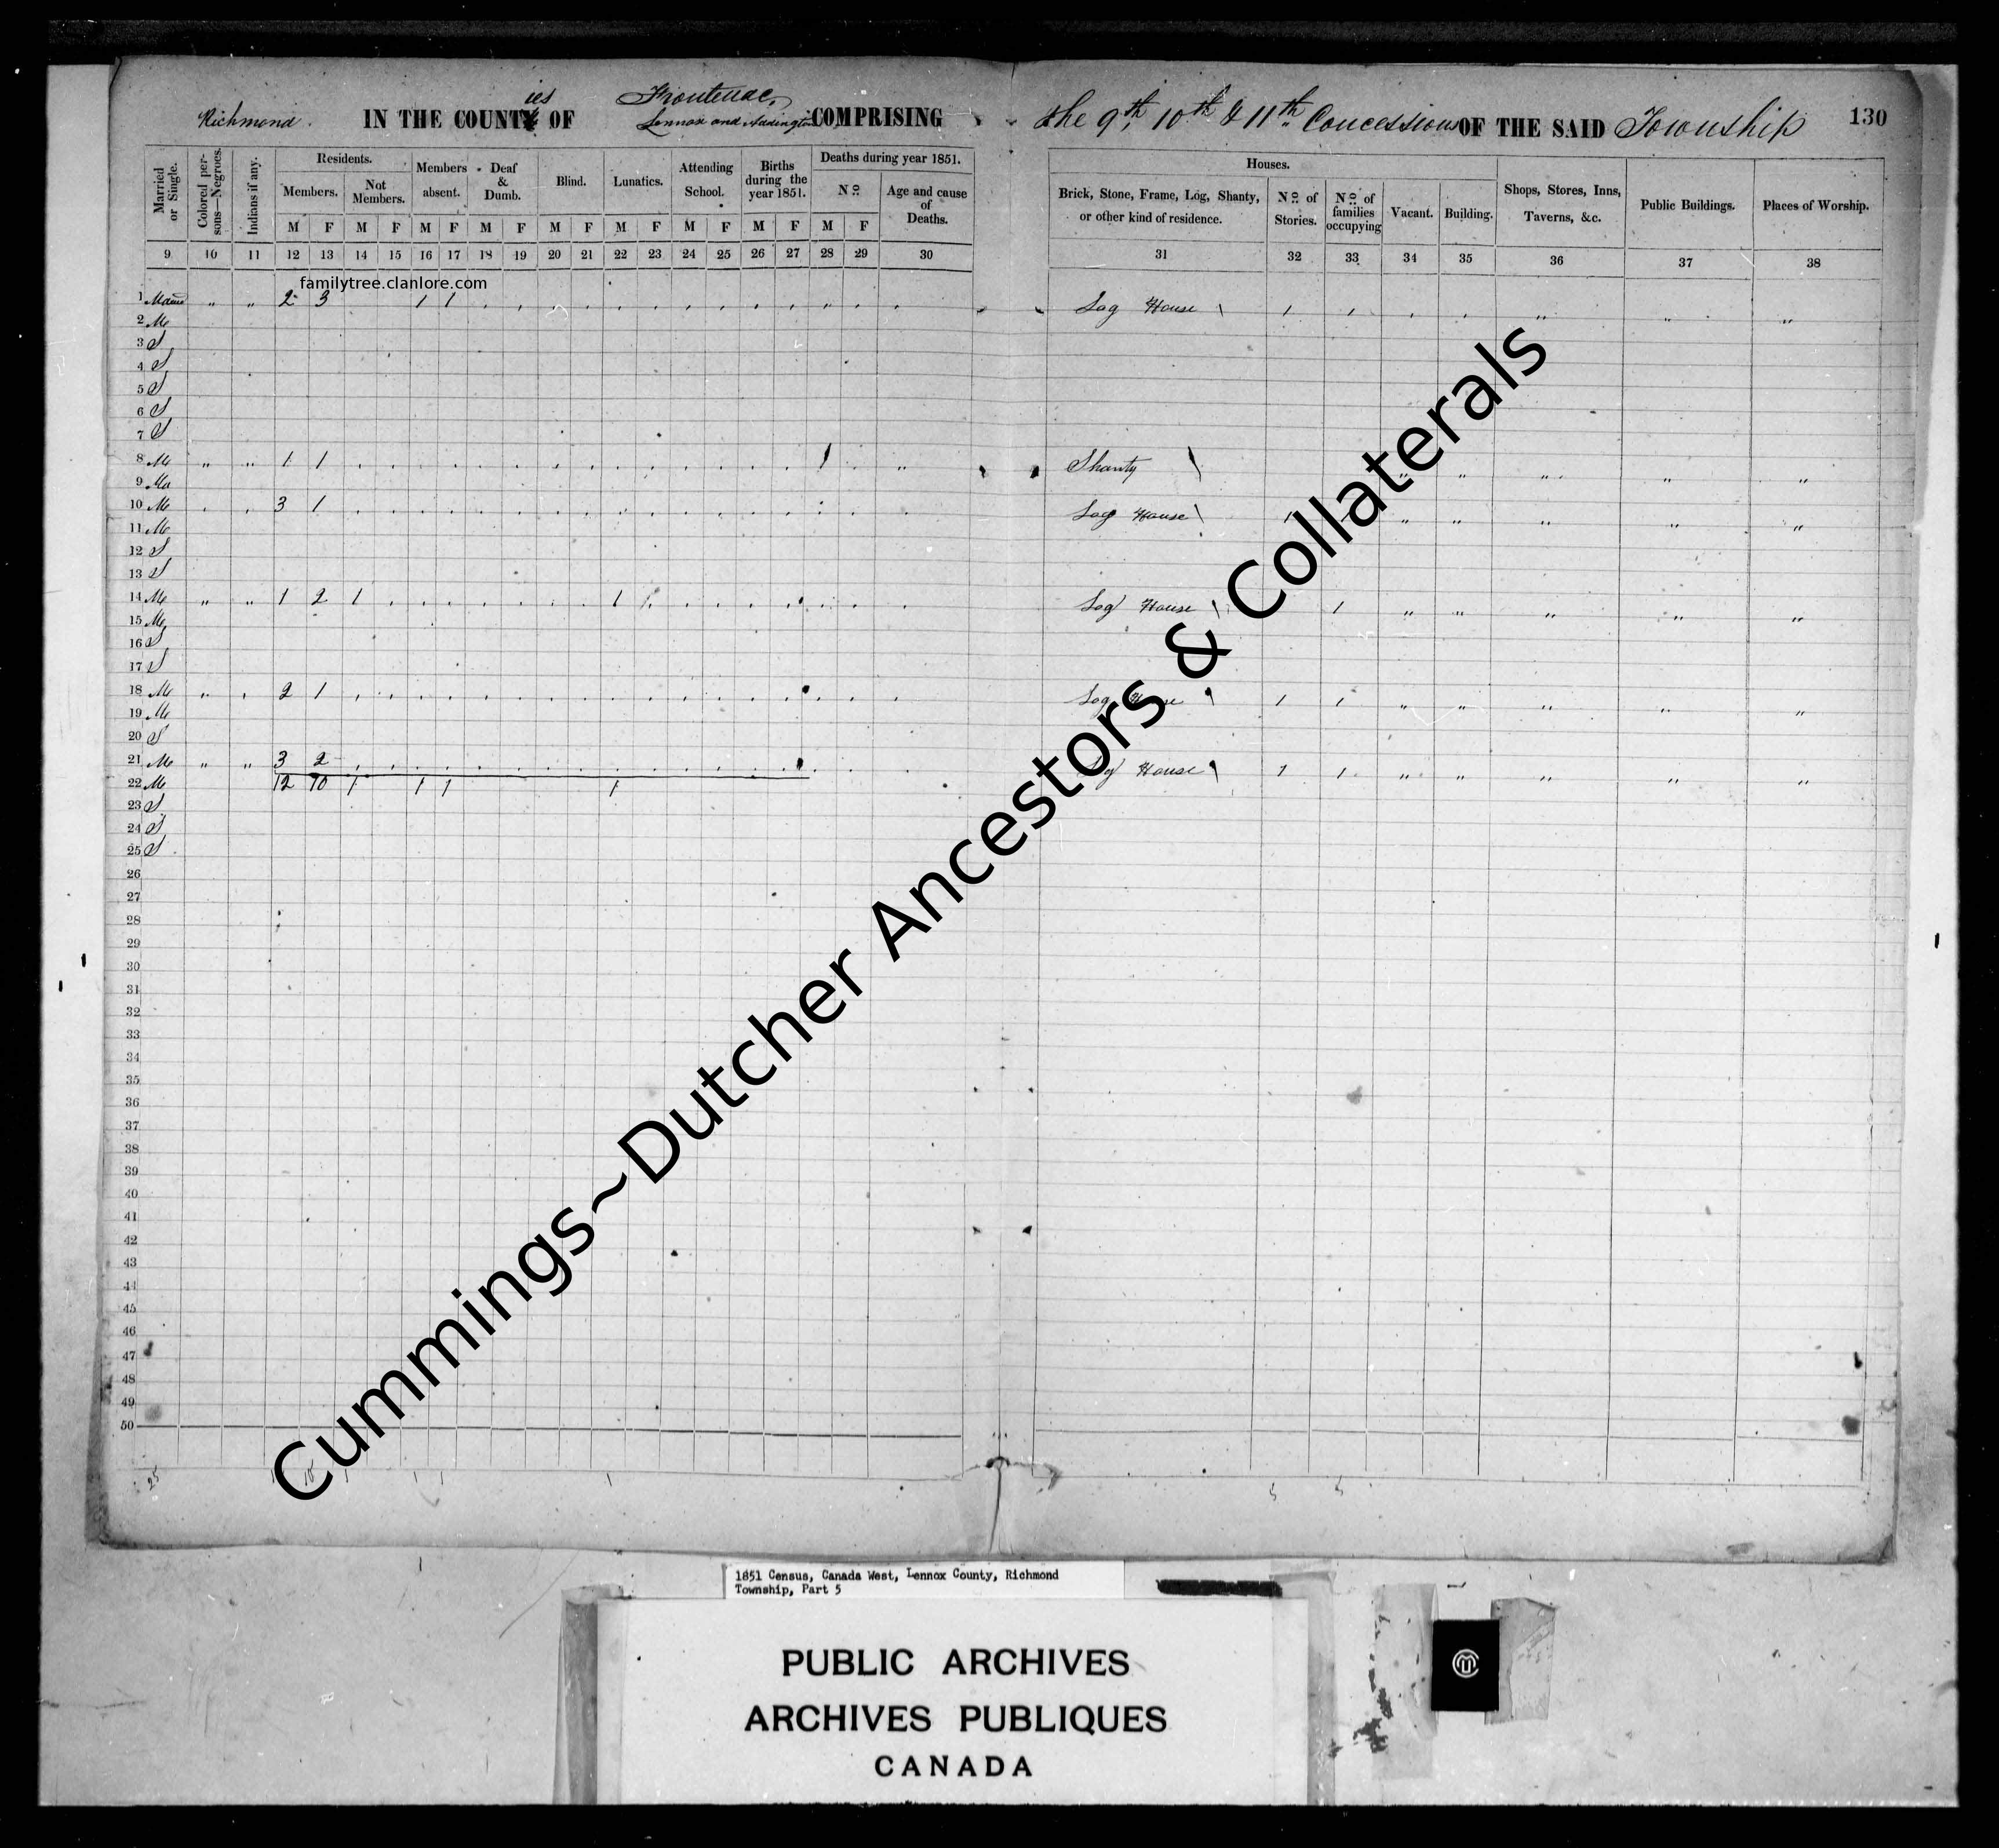 Richmond. IN THE COUNTies OF Frontenac, Lennox and Addington COMPRISING the 9th, 10th & 11th Concessions OF THE SAID Township 130
Married or Single. Colored persons—Negroes. Indians if any. Residents. Members absent. Deaf & Dumb. Blind. Lunatics. Attending School. Births during the year 1851. Deaths during year 1851. Houses. Shops, Stores, Inns, Taverns, &c. Public Buildings. Places of Worship.
Members. Not Members. No. Age and cause of Deaths. Brick, Stone, Frame, Log, Shanty, or other kind of residence. No. of Stories. No. of families occupying Vacant. Building.
M F M F M F M F M F M F M F M F M F
9 10 11 12 13 14 15 16 17 18 19 20 21 22 23 24 25 26 27 28 29 30 31 32 33 34 35 36 37 38
familytree.clanlore.com
1 " " 2 3 1 1 Log House 1 1 " "
2 M
3 S
4 S
5 S
6 S
7 S
8 M " " 1 1 1 " Shanty " " " " "
9 Ma
10 M 3 1 Log House 1 " " " " "
11 M
12 S
13 S
14 M " " 1 2 1 1 Log House 1 " " " " "
15 M
16 S
17 S
18 M " 2 1 Log House 1 1 " " " " "
19 M
20 S
21 M " " 3 2 Log House 1 1 " " " " "
22 M 12 10 1 1 1 1
23 S
24 S
25 S
26
27
28
29
30
31
32
33
34
35
36
37
38
39
40
41
42
43
44
45
46
47
48
49
50
25 1 1 1 5 5
Cummings~Dutcher Ancestors & Collaterals
1851 Census, Canada West, Lennox County, Richmond
Township, Part 5
PUBLIC ARCHIVES
ARCHIVES PUBLIQUES
CANADA